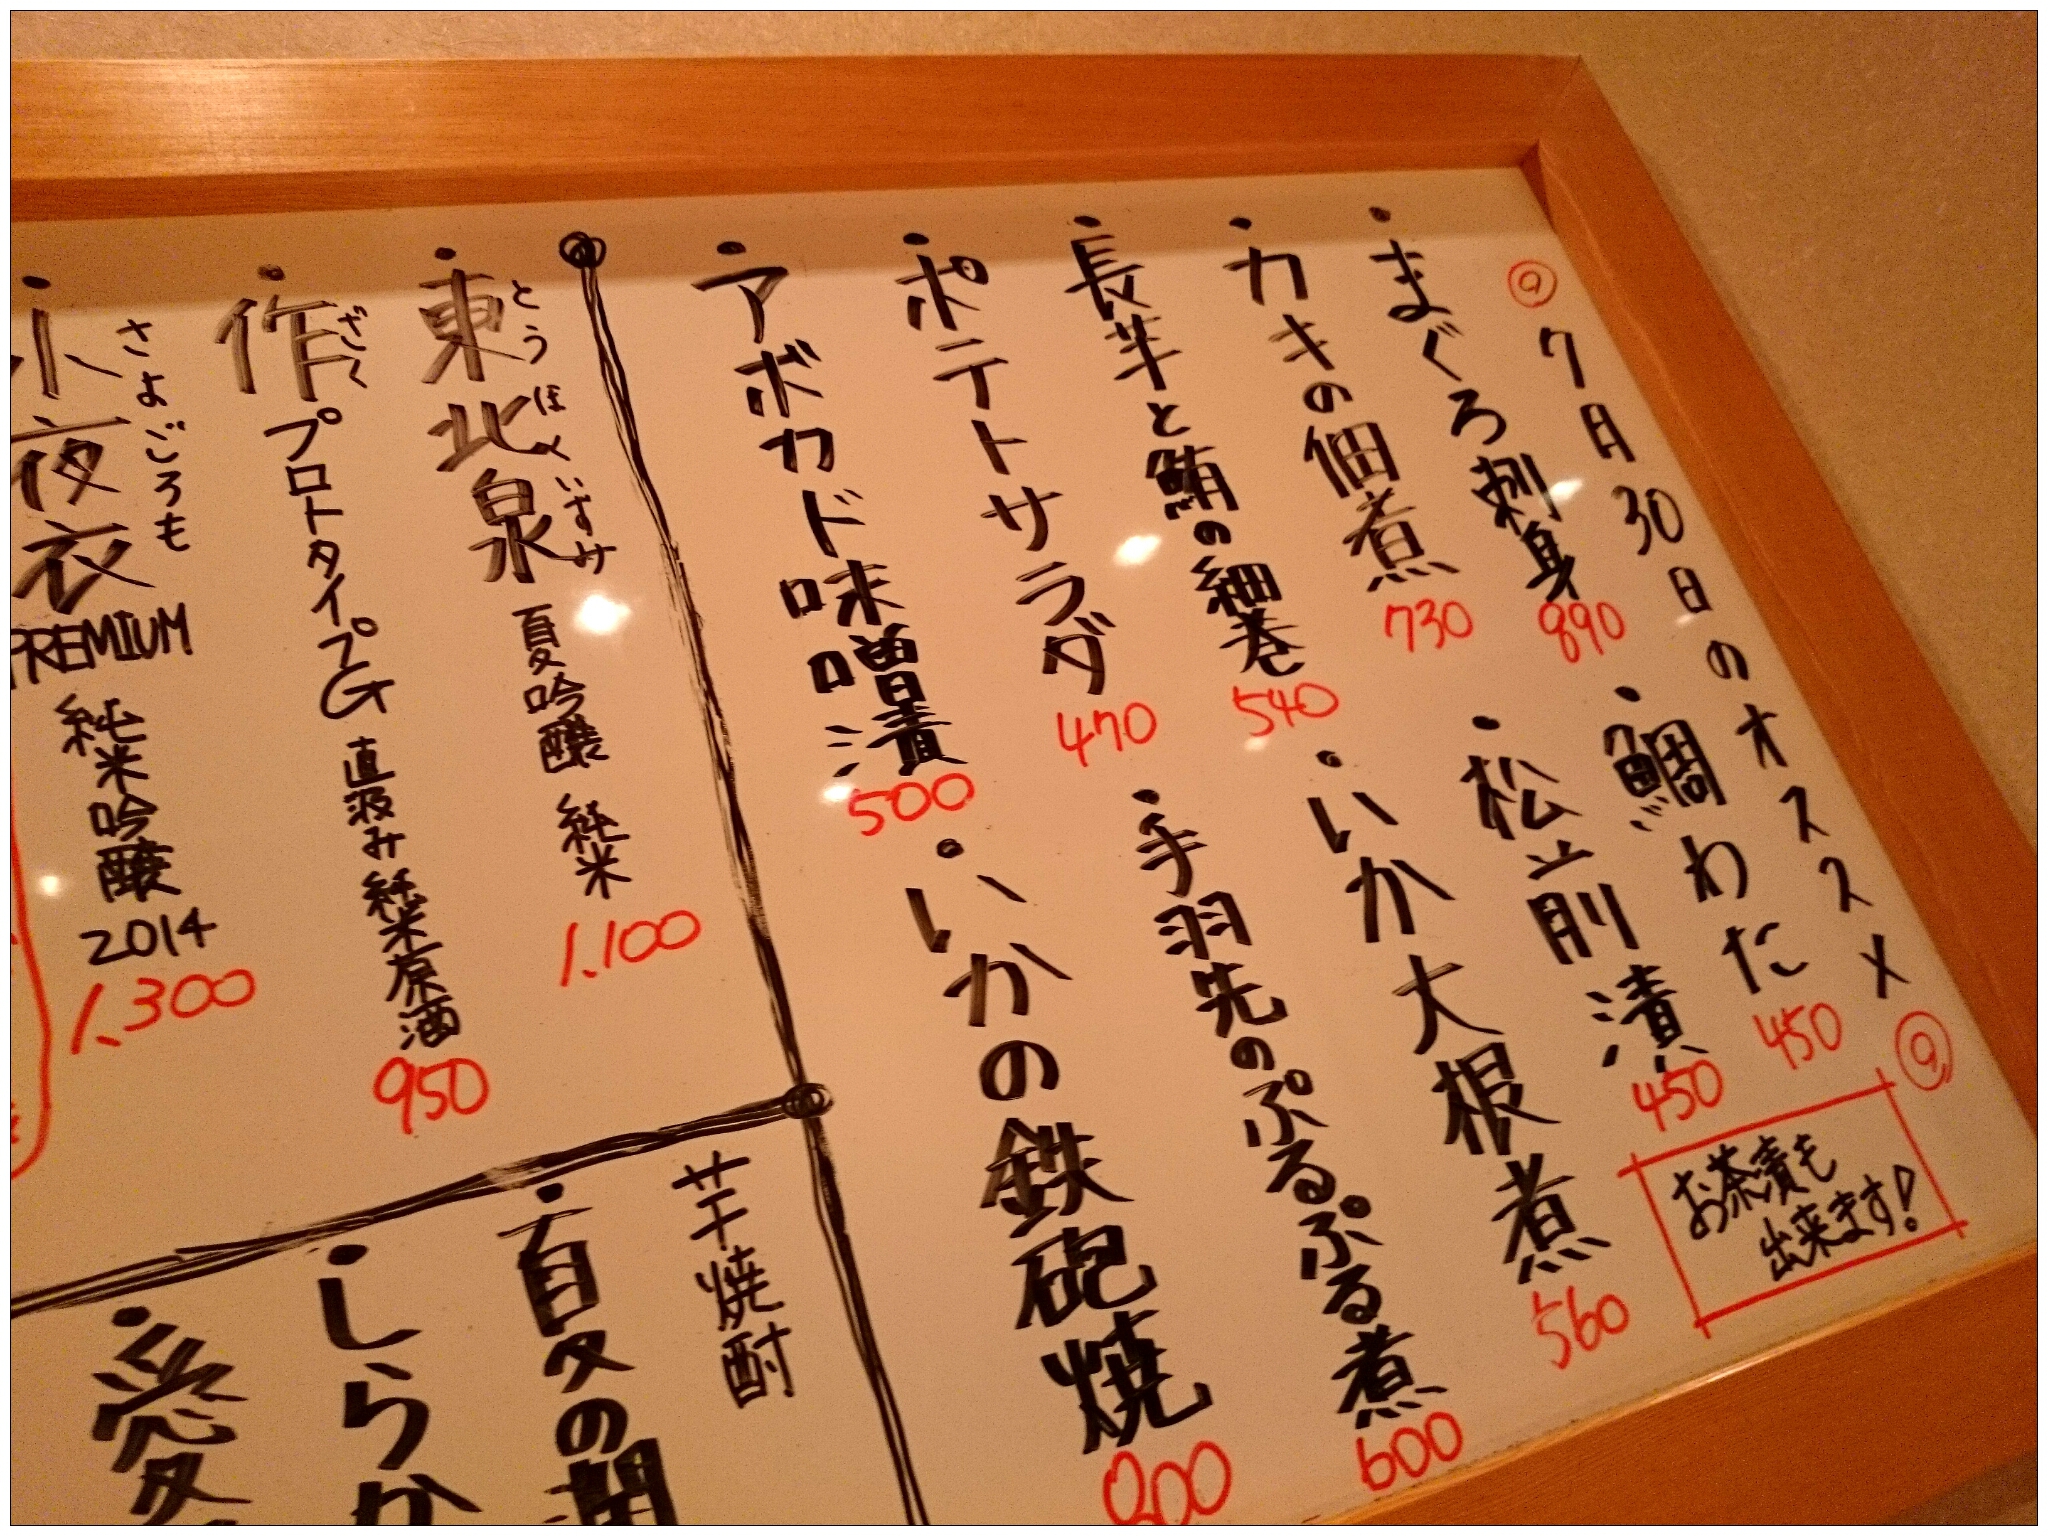 7月30日のオススメ
・まぐろ刺身 890
・鯛わた 450
お茶漬も
出来ます!
・カキの佃煮 730
・松前漬 450
・長芋と鮪の細巻 540
・いか大根煮 560
・ポテトサラダ 470
・手羽先のぷるぷる煮 600
・アボカド味噌漬 500
・いかの鉄砲焼
・東北泉 夏吟醸 純米 1,100
とうほくいずみ
・作 プロトタイプG 直汲み純米原酒 950
ざく
・小夜衣 PREMIUM 純米吟醸 2014 1,300
さよごろも
芋焼酎
・夏の
・しらか